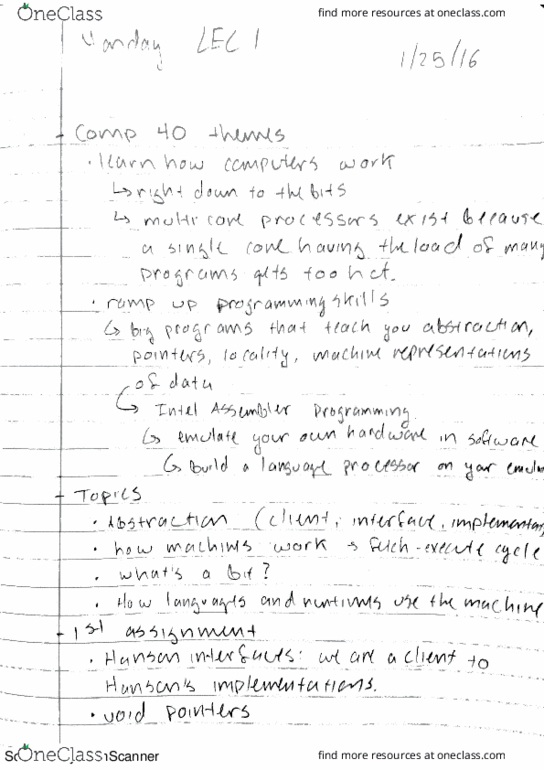 OneClass find more resources at oneclass.com
Monday LEC 1
1/25/16
- Comp 40 themes
• learn how computers work
↳ right down to the bits
↳ multi core processors exist because
a single core having the load of many
programs gets too hot.
• ramp up programming skills
↳ big programs that teach you abstraction,
pointers, locality, machine representations
of data
↳ Intel Assembler Programming
↳ emulate your own hardware in software
↳ Build a language processor on your emul
- Topics
• Abstraction (client, interface, implementa
• how machines work → fetch-execute cycle
• what's a bit?
• How languages and runtimes use the machine
- 1st assignment
• Hanson interfaces: we are a client to
Hanson's implementations.
• void pointers
OneClass Scanner find more resources at oneclass.com